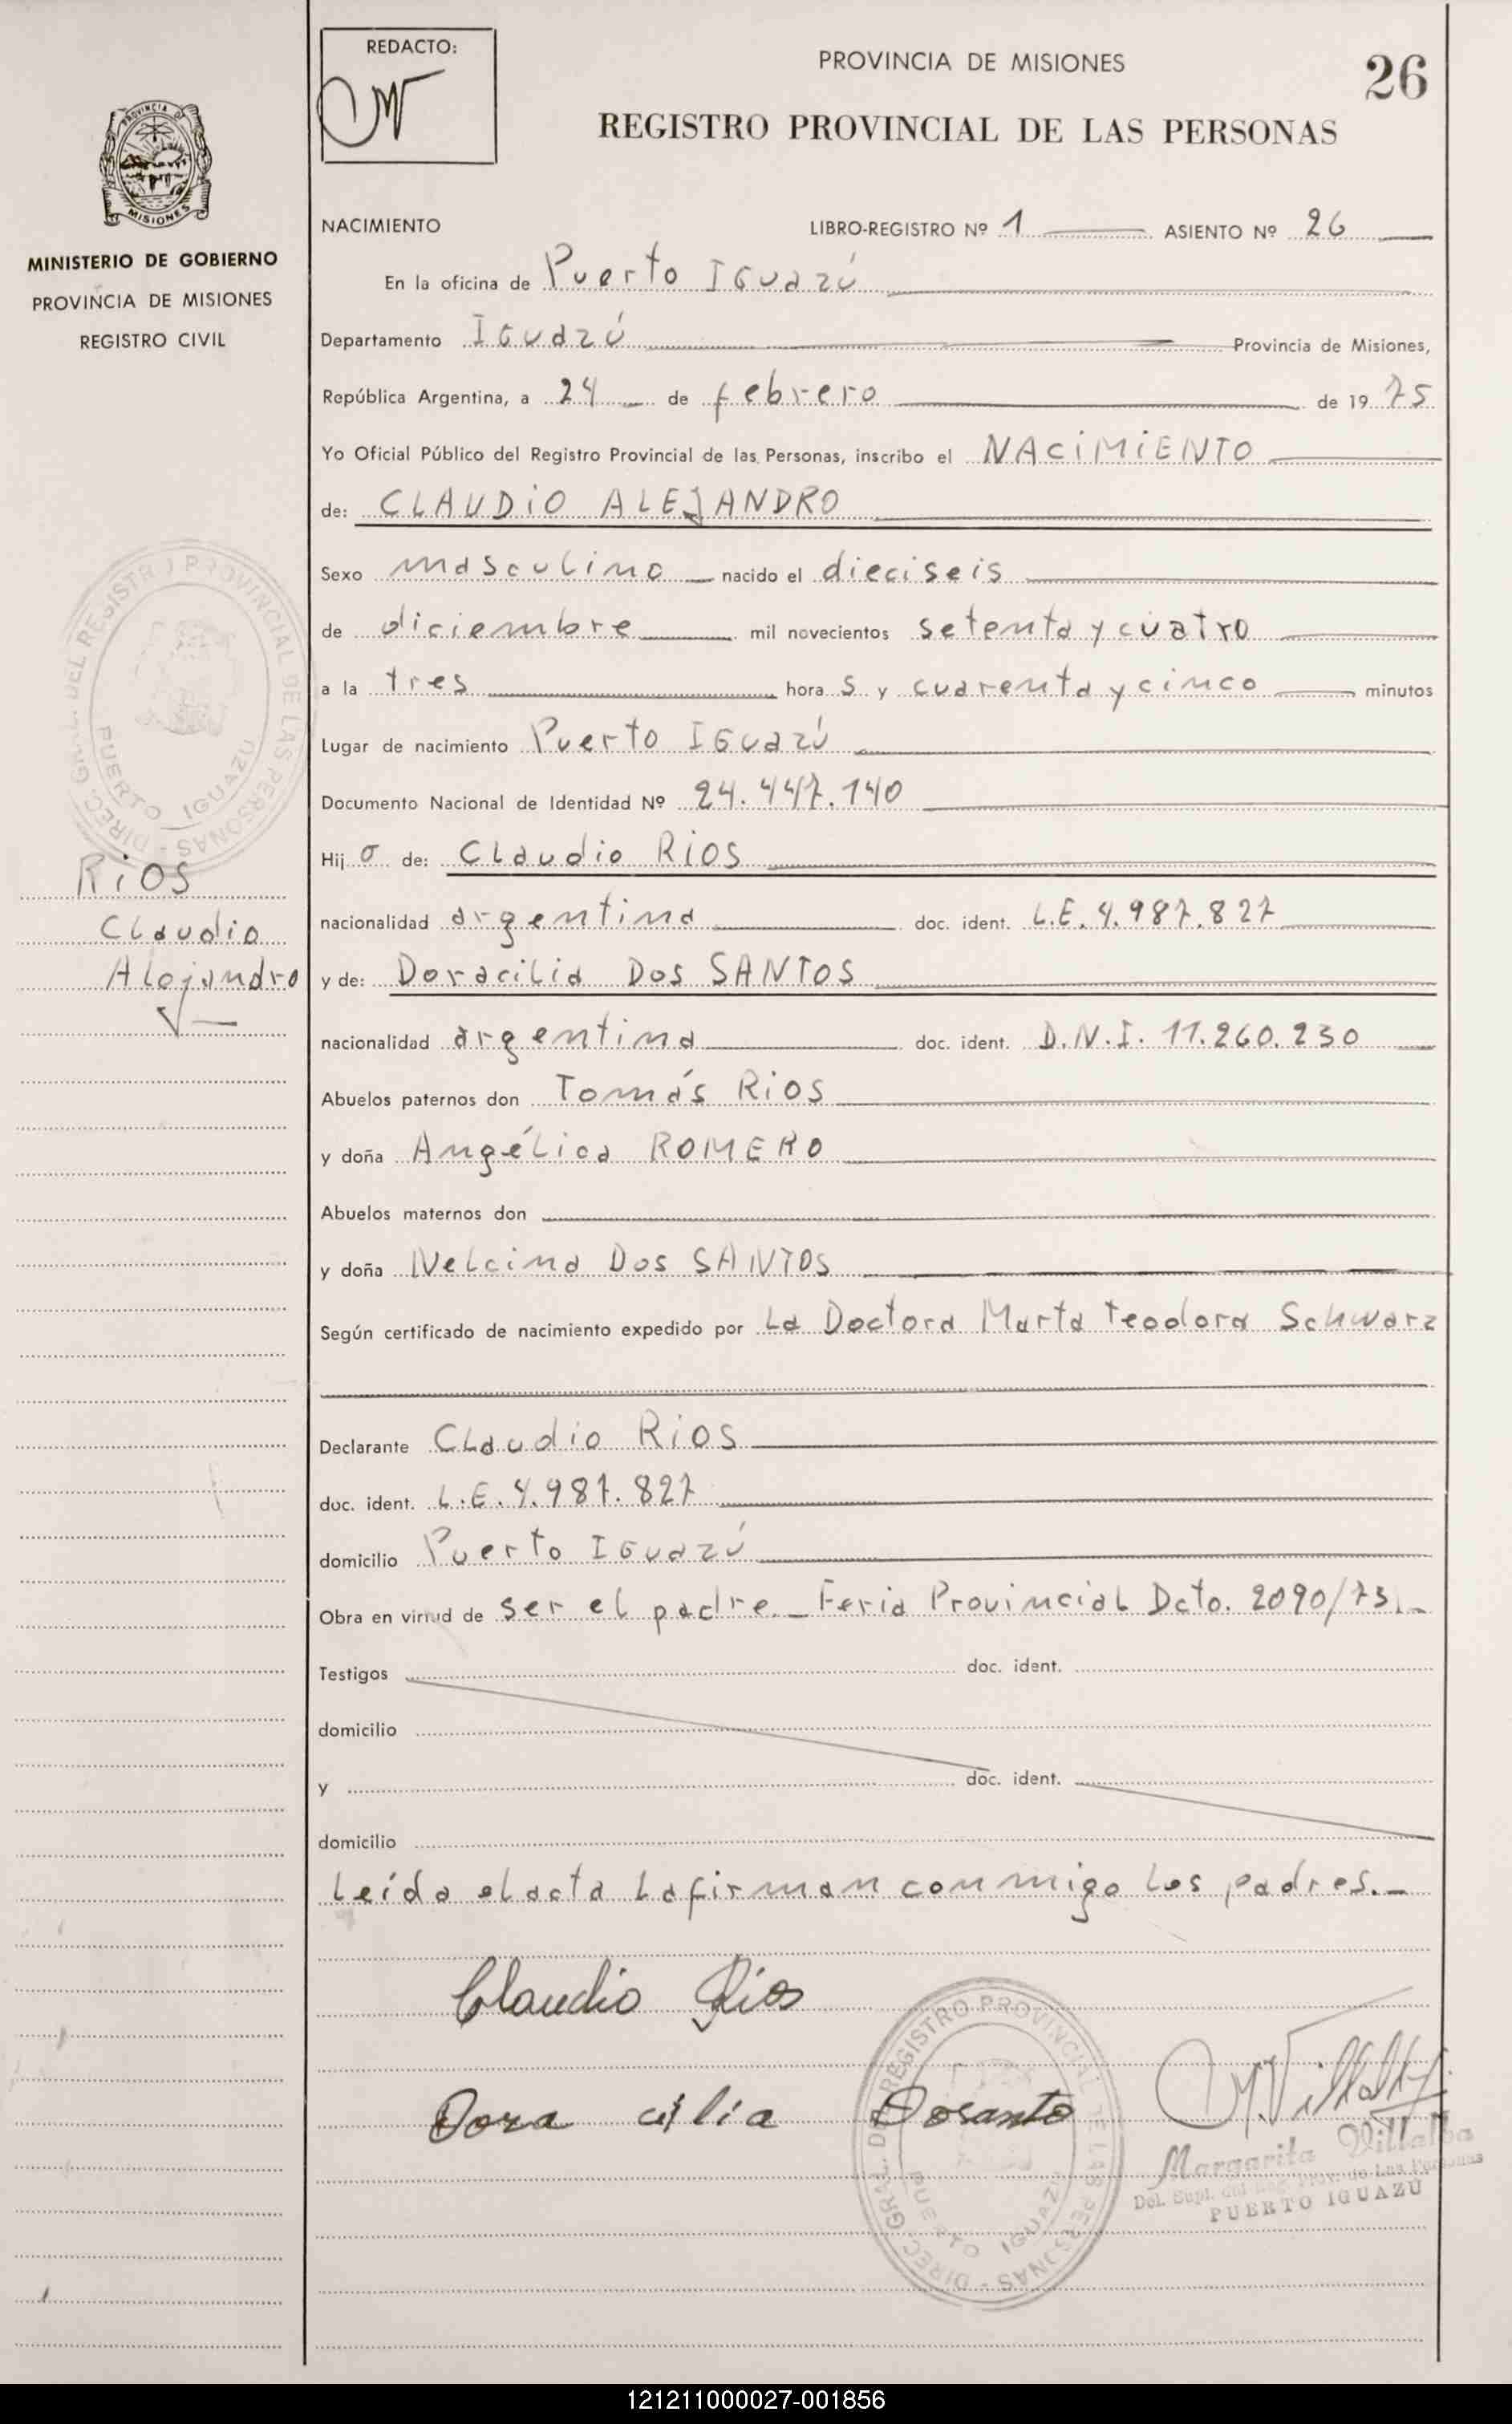 REDACTO:
PROVINCIA DE MISIONES
26
REGISTRO PROVINCIAL DE LAS PERSONAS
PROVINCIA DE MISIONES
MINISTERIO DE GOBIERNO
PROVINCIA DE MISIONES
REGISTRO CIVIL
NACIMIENTO LIBRO-REGISTRO Nº 1 ASIENTO Nº 26
En la oficina de Puerto IGuazú
Departamento IGuazú Provincia de Misiones,
República Argentina, a 24 de febrero de 1975
Yo Oficial Público del Registro Provincial de las Personas, inscribo el NACiMiENTO
de: CLAUDiO ALEJANDRO
Sexo masculino nacido el dieciseis
de diciembre mil novecientos setenta y cuatro
a la tres hora s y cuarenta y cinco minutos
Lugar de nacimiento Puerto IGuazú
Documento Nacional de Identidad Nº 24.447.140
Hij o de: Claudio RiOS
nacionalidad argentina doc. ident. L.E. 4.987.827
y de: Doracilia Dos SANTOS
nacionalidad argentina doc. ident. D.N.I. 11.260.230
Abuelos paternos don Tomás RiOS
y doña Angélica ROMERO
Abuelos maternos don
y doña Nelcina Dos SANTOS
Según certificado de nacimiento expedido por La Doctora Marta Teodora Schwarz
Declarante Claudio RiOS
doc. ident. L.E. 4.987.827
domicilio Puerto IGuazú
Obra en virtud de ser el padre._ Feria Provincial Dcto. 2090/73._
Testigos doc. ident.
domicilio
y doc. ident.
domicilio
Leída el acta la firman conmigo los padres._
Claudio Rios
Dora cilia Dosanto
M. Villalba
Margarita Villalba
Del. Supl. del Reg. Prov. de Las Personas
PUERTO IGUAZÚ
DIREC. GRAL. DEL REGISTRO PROVINCIAL DE LAS PERSONAS
PUERTO IGUAZU
RiOS
Claudio
Alejandro
DIREC. GRAL. DEL REGISTRO PROVINCIAL DE LAS PERSONAS
PUERTO IGUAZU
121211000027-001856